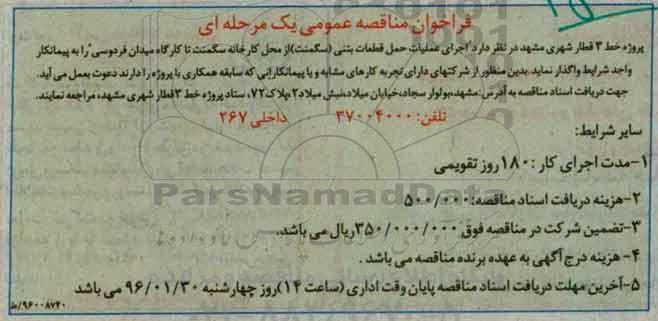 فراخوان مناقصه عمومی یک مرحله ای
پروژه خط ۳ قطار شهری مشهد در نظر دارد"اجرای عملیات حمل قطعات بتنی (سگمنت)از محل کارخانه سگمنت تا کارگاه میدان فردوسی"را به پیمانکار
واجد شرایط واگذار نماید.بدین منظور از شرکتهای دارای تجربه کارهای مشابه و یا پیمانکارانی که سابقه همکاری با پروژه را دارند دعوت بعمل می آید.
جهت دریافت اسناد مناقصه به آدرس:مشهد،بولوار سجاد،خیابان میلاد،نبش میلاد۲،پلاک۷۲، ستاد پروژه خط ۳قطار شهری مشهد، مراجعه نمایند.
تلفن: ۳۷۰۰۴۰۰۰ داخلی ۲۶۷
سایر شرایط:
۱-مدت اجرای کار :۱۸۰روز تقویمی
ParsNamadData
۲-هزینه دریافت اسناد مناقصه:۵۰۰/۰۰۰
۳-تضمین شرکت در مناقصه فوق ۳۵۰/۰۰۰/۰۰۰ریال می باشد.
۴- هزینه درج آگهی به عهده برنده مناقصه می باشد .
۵-آخرین مهلت دریافت اسناد مناقصه پایان وقت اداری (ساعت ۱۴)روز چهارشنبه ۹۶/۰۱/۳۰ می باشد
۹۶۰۰۸۷۴۰/ط